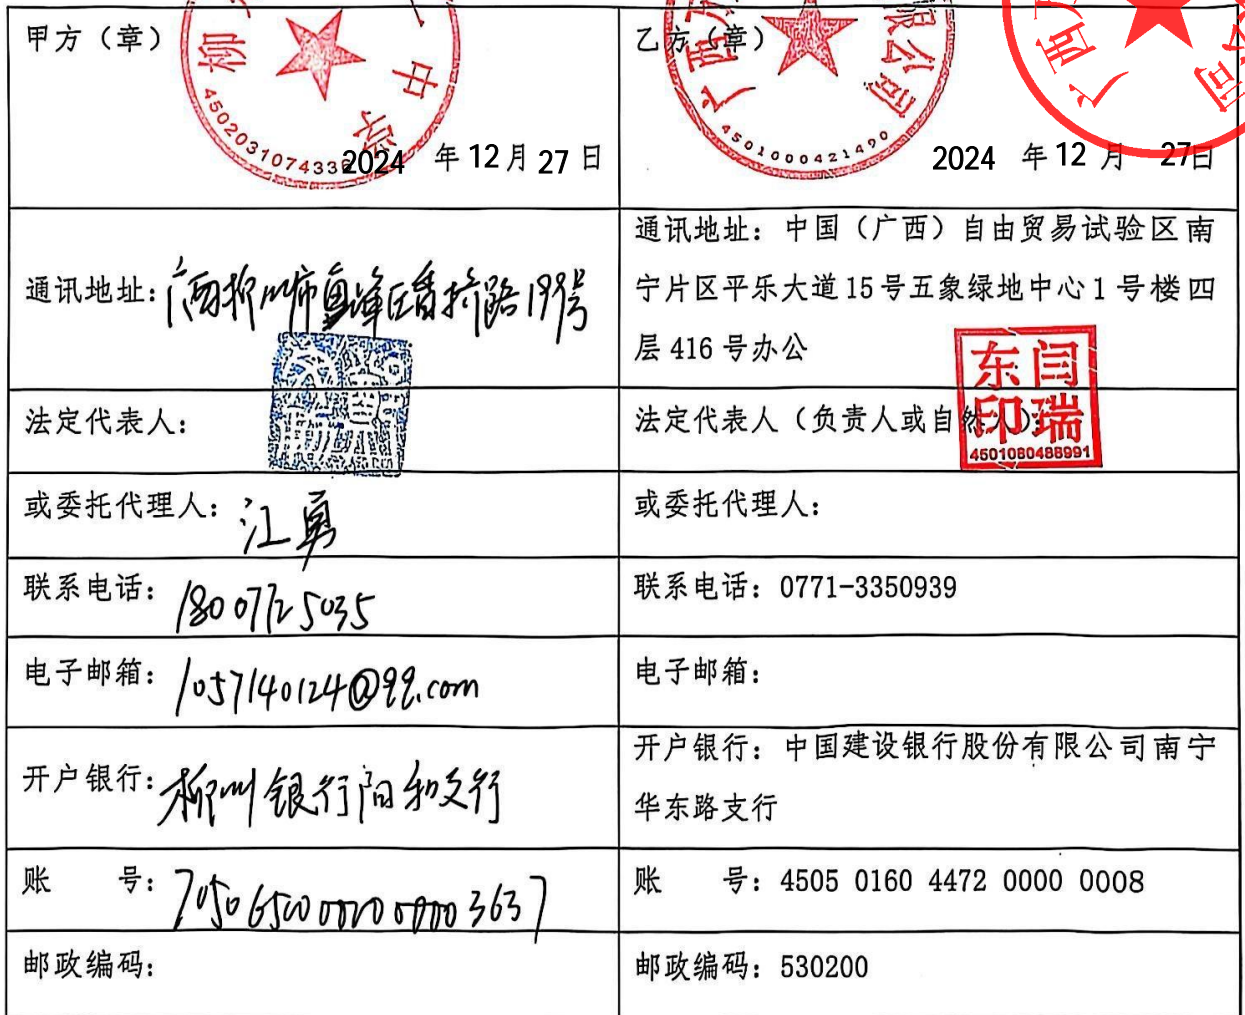 甲方（章）
柳
中
学
4502031074336
2024 年 12 月 27 日
乙方（章）
广西
限公司
4501000421490
广西
司
2024 年 12 月 27日
通讯地址：广西柳州市鱼峰区香拎路199号
通讯地址：中国（广西）自由贸易试验区南
宁片区平乐大道15号五象绿地中心1号楼四
层416号办公
法定代表人：
法定代表人（负责人或自然人）：
东闫
印瑞
4501080488991
或委托代理人：江勇
或委托代理人：
联系电话：18007725035
联系电话：0771-3350939
电子邮箱：1057140124@qq.com
电子邮箱：
开户银行：柳州银行阳和支行
开户银行：中国建设银行股份有限公司南宁
华东路支行
账　　号：
账　　号：4505 0160 4472 0000 0008
邮政编码：
邮政编码：530200